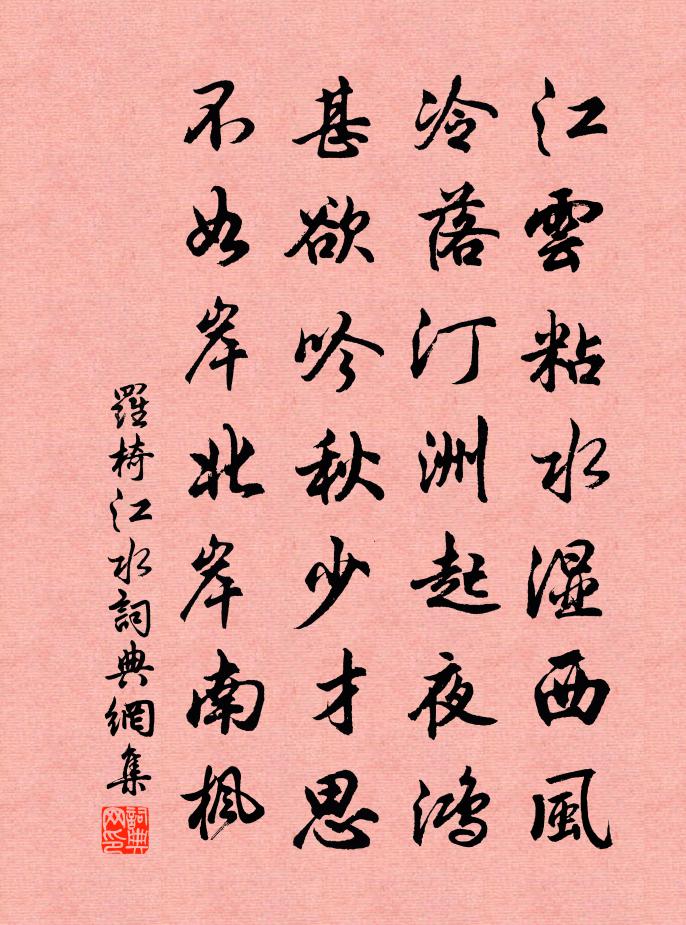 江雲粘水湿西風
冷落汀洲起夜鴻
甚欲吟秋少才思
不如岸北岸南楓
羅椅江水詞典網集
詞典网印